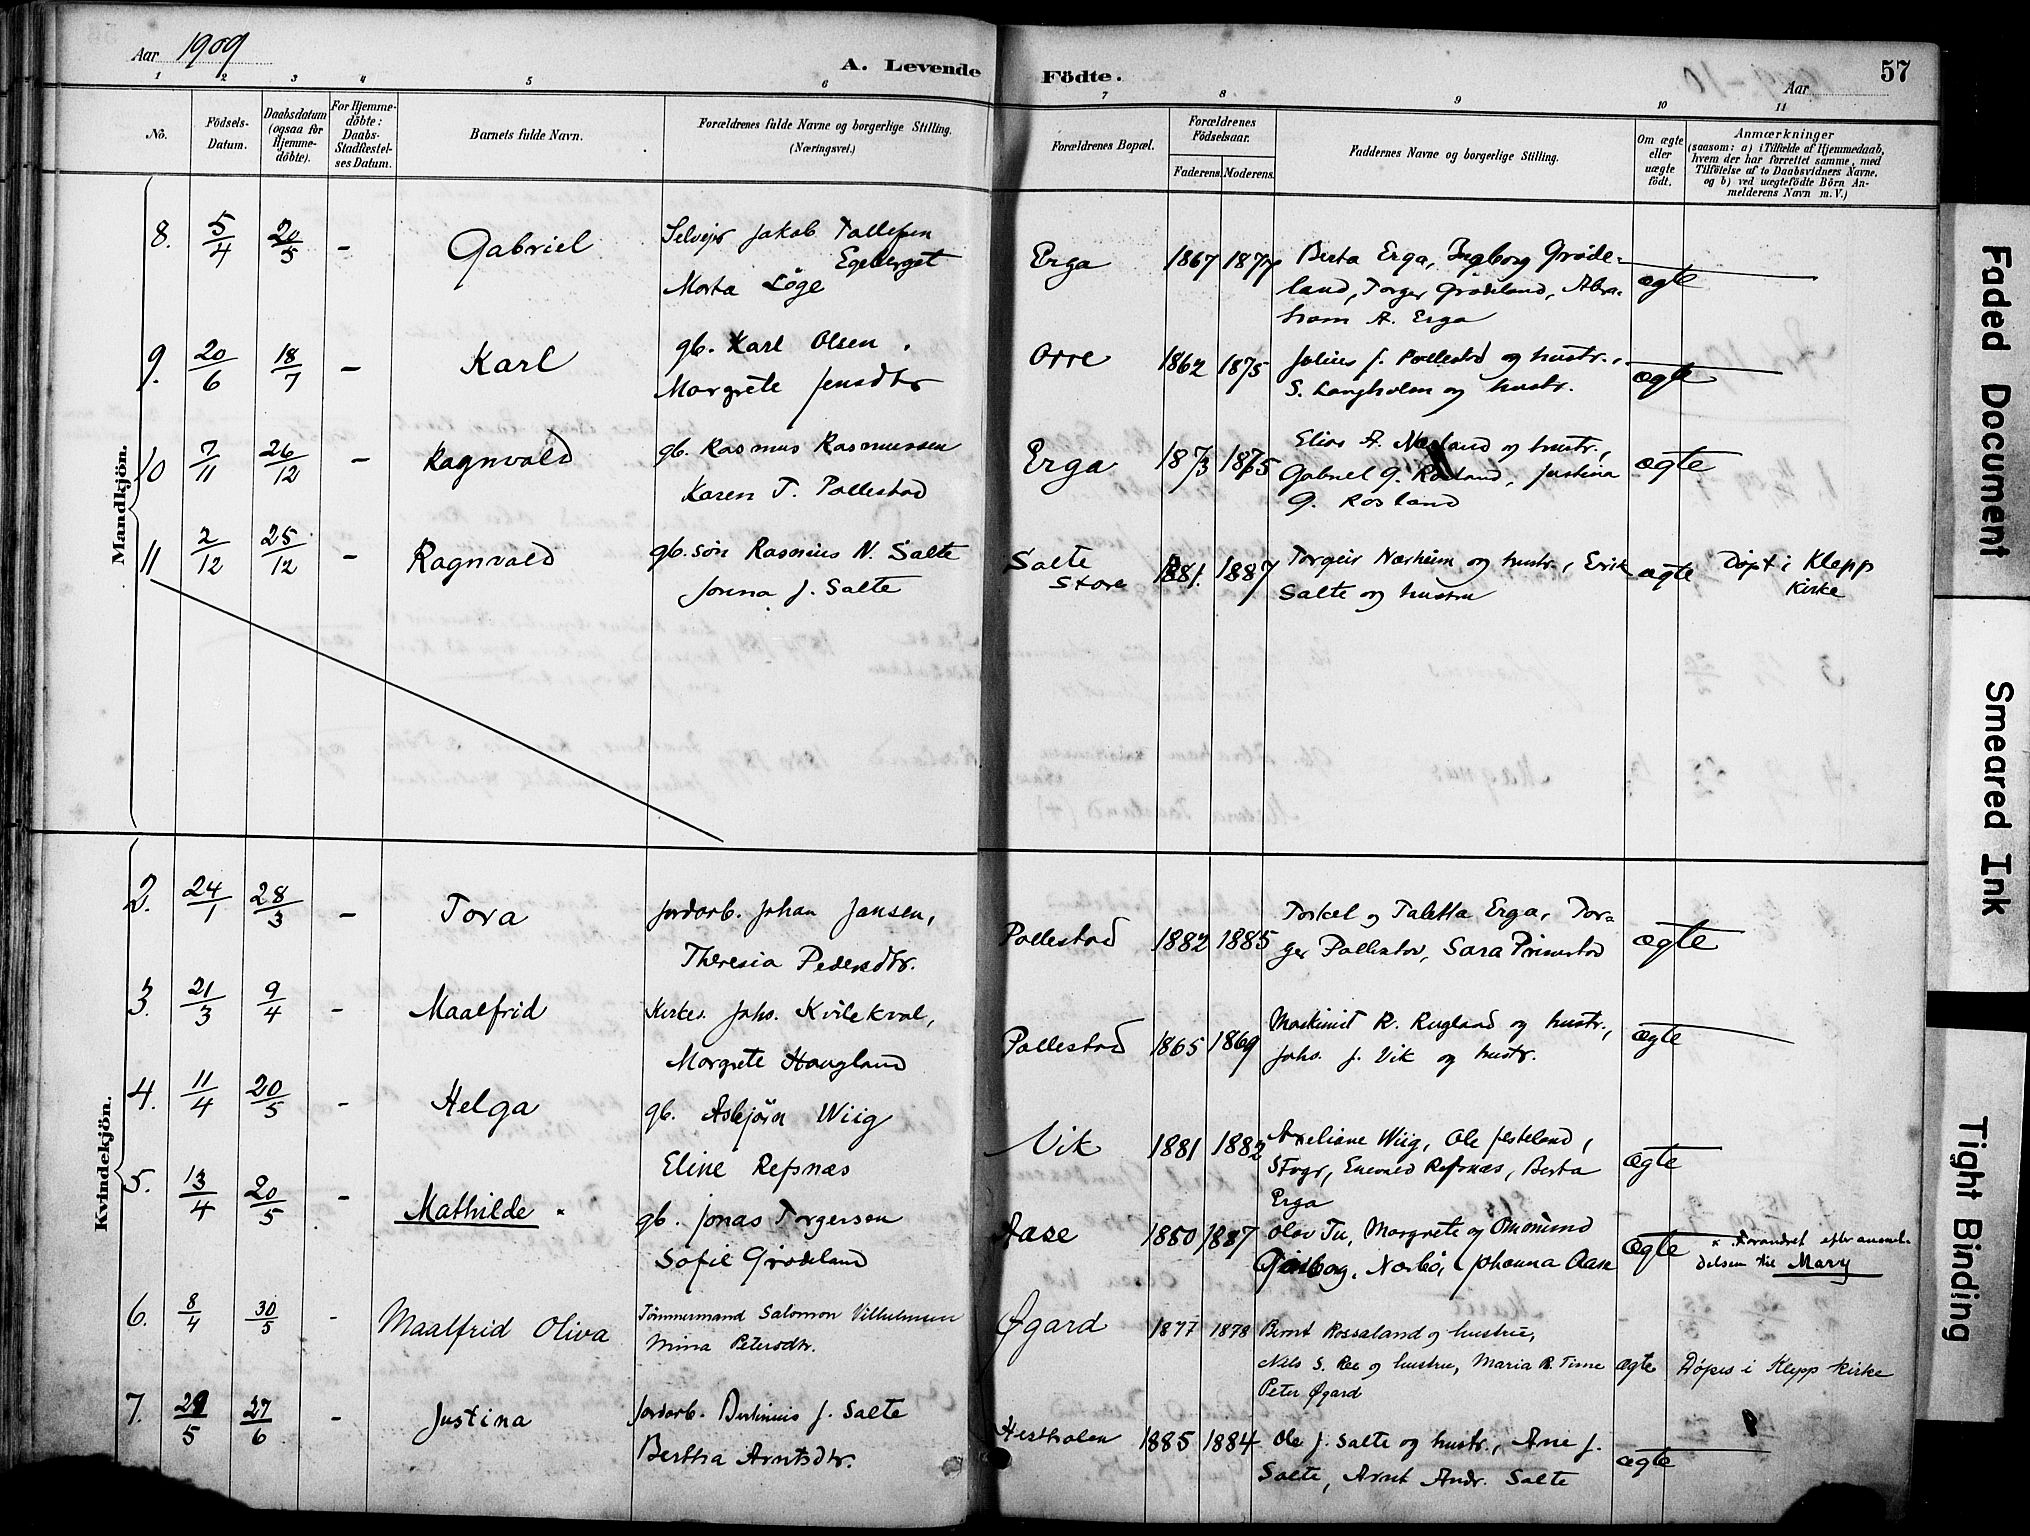 Aar 1909
A. Levende Födte.
57
Aar
1 2 3 4 5 6 7 8 9 10 11
No.
Födsels-Datum.
Daabsdatum (ogsaa for Hjemme-döbte).
For Hjemme-döbte: Daabs-Stadfæstel-ses Datum.
Barnets fulde Navn.
Forældrenes fulde Navne og borgerlige Stilling. (Næringsvei.)
Forældrenes Bopæl.
Forældrenes Födselsaar.
Faderens. Moderens.
Faddernes Navne og borgerlige Stilling.
Om ægte eller uægte födt.
Anmærkninger
(saasom: a) i Tilfælde af Hjemmedaab,
hvem der har forrettet samme, med
Tilföielse af to Daabsvidners Navne,
og b) ved uægtefödte Börn An-
melderens Navn m. V.)
Mandkjön.
8. 5/4 20/5 - Gabriel
Selveier Jakob Tallefsen
Egeberget
Marta Löge
Erga 1867 1877
Berta Erga, Ingborg Grøde-
land, Torger Grødeland, Abra-
ham A. Erga
ægte
9. 20/6 18/7 - Karl
gb. Karl Olsen,
Margrete Jensdtr
Orre 1862 1875
Julius J. Pollestad og hustr.,
S. Langholen og hustr.
ægte
10 7/11 26/12 - Ragnvald
gb. Rasmus Rasmussen
Karen T. Pollestad
Erga 1873 1875
Elias A. Nærland og hustr.,
Gabriel G. Rosland, Justina
G. Rosland
ægte
11 2/12 25/12 - Ragnvald
gb. søn Rasmus N. Salte
Jonna J. Salte
Salte
Store
1881 1887
Torgeir Nærheim og hustr., Erik
Salte og hustru
ægte
Døpt i Klepp
Kirke
Kvindekjön.
2. 24/1 28/3 - Tora
Jordarb. Johan Jansen,
Theresia Pedersdtr.
Pollestad 1882 1885
Torkel og Taletta Erga, Tor-
ger Pollestad, Sara Primstad
ægte
3. 21/3 9/4 - Maalfrid
Kirkes. Johs. Kvilekval,
Margrete Haugland
Pollestad 1865 1869
Maskinist R. Rugland og hustr.,
Johs. J. Vik og hustr.
ægte
4. 11/4 20/5 - Helga
gb. Asbjørn Wiig
Eline Refsnæs
Vik 1881 1882
Wiig, Ole
Refsnæs, Berta
Erga
ægte
5. 13/4 20/5 - Mathilde ×
gb. Jonas Torgersen
Sofie Grødeland
Aase 1880 1887
Olav Tu, Margrete og Ommund
Njærbø, Johanna Aase
ægte
× Forandret efter anmel-
delsen til Mary
6. 8/4 30/5 - Maalfrid Oliva
Tømmermand Salomon Vilhelmsen
Mina Petersdtr.
Øgard 1877 1878
Bernt Rossaland og hustru,
Nils S. Ree og hustru, Maria R. Time
Peter Øgard
ægte
Døpes i Klepp kirke
7. 29/5 27/6 - Justina
Jordarb. Bertinius J. Salte
Bertha Arntsdtr.
Hestholen 1885 1884
Ole J. Salte og hustr., Ane J.
Salte, Arnt Andr. Salte
ægte
Faded Document
Smeared Ink
Tight Binding